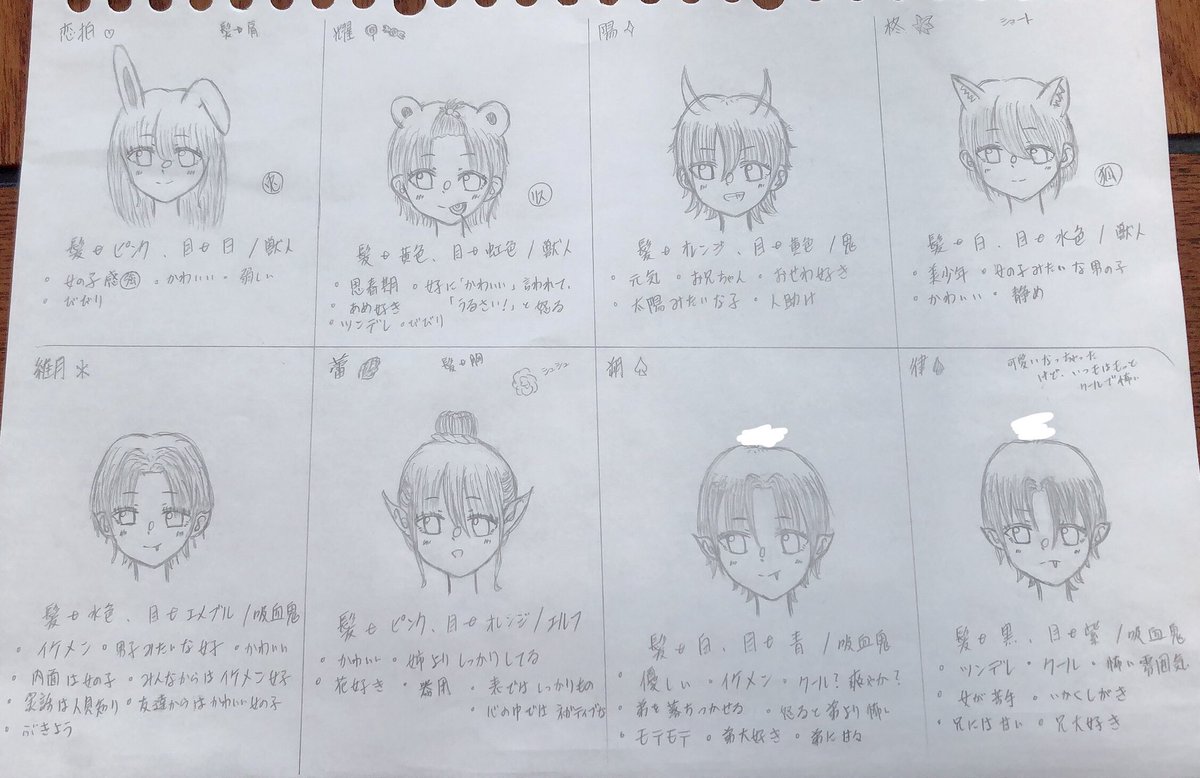 恋拍♡
髪→肩
髪→ピンク、目→白/獣人
・かわいい・弱い
・びびり
燿
髪→黄色、目→虹色/獣人
・思春期・女子に「かわいい」言われて、
・あめ好き 「うるさい!」と怒る
・ツンデレ・びびり
陽
髪→オレンジ、目→黄色/鬼
・元気・お兄ちゃん・おせわ好き
・太陽みたいな子・人助け
柊
ショート
狐
髪→白、目→水色/獣人
・美少年・女の子みたいな男の子
・かわいい・静め
髪→水色、目→エメラル/吸血鬼
・イケメン・男子みたいな女子・かわいい
・内面は女の子・みんなからはイケメン女子
・実話は人見知り・友達からはかわいい女の子
・ぶきよう
蕾
髪→胸
シュシュ
髪→ピンク、目→オレンジ/エルフ
・かわいい・姉よりしっかりしてる
・花好き・器用・表ではしっかりもの
・心の中ではネガティブな
朔♤
髪→白、目→青/吸血鬼
・優しい・イケメン・クール?爽やか?
・弟を落ちつかせる・怒ると弟より怖い
・モテモテ・弟大好き・弟に甘い
律
可愛いなっちゃった
けど、いつもはもっと
クールで怖い
髪→黒、目→紫/吸血鬼
・ツンデレ・クール・怖い雰囲気
・女が苦手・いかくしがち
・兄には甘い・兄大好き